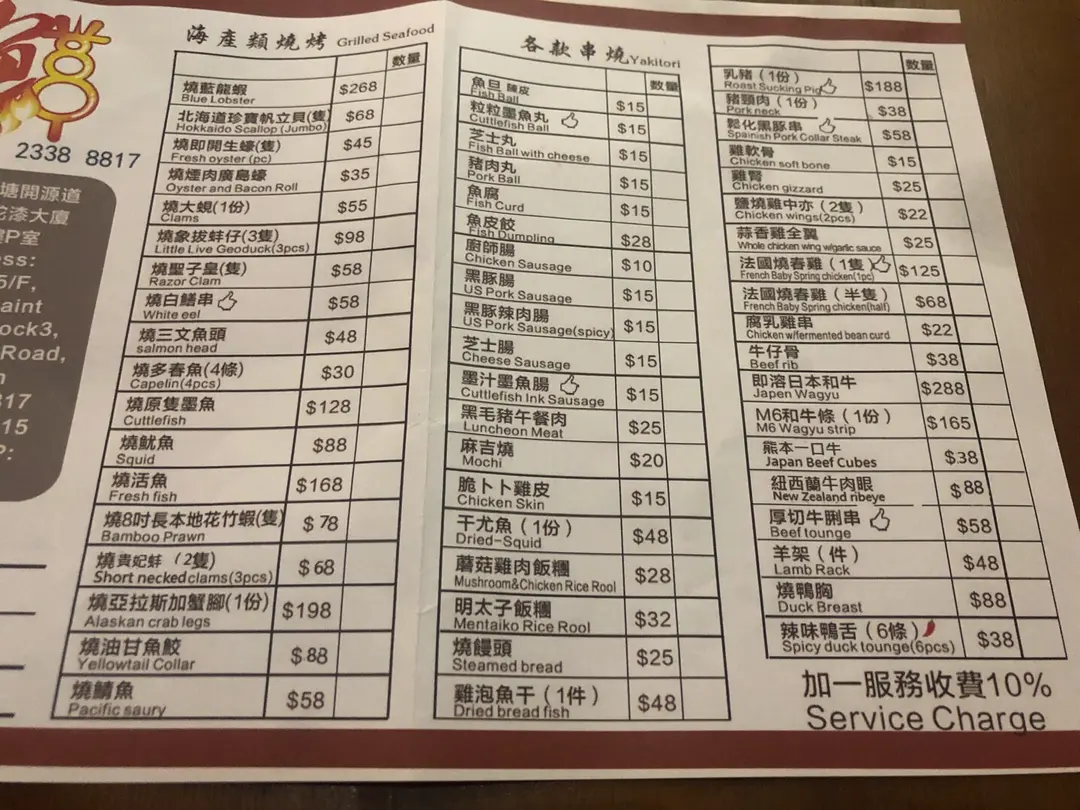 2338 8817
塘開源道
花漆大廈
P室
ess:
5/F,
aint
ock3,
Road,
n
817
15
P:
海產類燒烤 Grilled Seafood
數量
燒藍龍蝦 $268
Blue Lobster
北海道珍寶帆立貝(隻) $68
Hokkaido Scallop (Jumbo)
燒即開生蠔(隻) $45
Fresh oyster (pc)
燒煙肉廣島蠔 $35
Oyster and Bacon Roll
燒大蜆(1份) $55
Clams
燒象拔蚌仔(3隻) $98
Little Live Geoduck(3pcs)
燒聖子皇(隻) $58
Razor Clam
燒白鱔串 $58
White eel
燒三文魚頭 $48
salmon head
燒多春魚(4條) $30
Capelin(4pcs)
燒原隻墨魚 $128
Cuttlefish
燒魷魚 $88
Squid
燒活魚 $168
Fresh fish
燒8吋長本地花竹蝦(隻) $78
Bamboo Prawn
燒貴妃蚌（2隻） $68
Short necked clams(3pcs)
燒亞拉斯加蟹腳(1份) $198
Alaskan crab legs
燒油甘魚鮫 $88
Yellowtail Collar
燒鯖魚 $58
Pacific saury
各款串燒Yakitori
數量
魚旦 陳皮 $15
Fish Ball
粒粒墨魚丸 $15
Cuttlefish Ball
芝士丸 $15
Fish Ball with cheese
豬肉丸 $15
Pork Ball
魚腐 $15
Fish Curd
魚皮餃 $28
Fish Dumpling
廚師腸 $10
Chicken Sausage
黑豚腸 $15
US Pork Sausage
黑豚辣肉腸 $15
US Pork Sausage(spicy)
芝士腸 $15
Cheese Sausage
墨汁墨魚腸 $15
Cuttlefish Ink Sausage
黑毛豬午餐肉 $25
Luncheon Meat
麻吉燒 $20
Mochi
脆卜卜雞皮 $15
Chicken Skin
干尤魚（1份） $48
Dried-Squid
蘑菇雞肉飯糰 $28
Mushroom&Chicken Rice Rool
明太子飯糰 $32
Mentaiko Rice Rool
燒饅頭 $25
Steamed bread
雞泡魚干（1件） $48
Dried bread fish
數量
乳豬（1份） $188
Roast Sucking Pig
豬頸肉（1份） $38
Pork neck
鬆化黑豚串 $58
Spainish Pork Collar Steak
雞軟骨 $15
Chicken soft bone
雞腎 $25
Chicken gizzard
鹽燒雞中亦（2隻） $22
Chicken wings(2pcs)
蒜香雞全翼 $25
Whole chicken wing w/garlic sauce
法國燒春雞（1隻） $125
French Baby Spring chicken(1pc)
法國燒春雞（半隻） $68
French Baby Spring chicken(half)
腐乳雞串 $22
Chicken w/fermented bean curd
牛仔骨 $38
Beef rib
即溶日本和牛 $288
Japen Wagyu
M6和牛條（1份） $165
M6 Wagyu strip
熊本一口牛 $38
Japan Beef Cubes
紐西蘭牛肉眼 $88
New Zealand ribeye
厚切牛脷串 $58
Beef tounge
羊架（件） $48
Lamb Rack
燒鴨胸 $88
Duck Breast
辣味鴨舌（6條） $38
Spicy duck tounge(6pcs)
加一服務收費10%
Service Charge